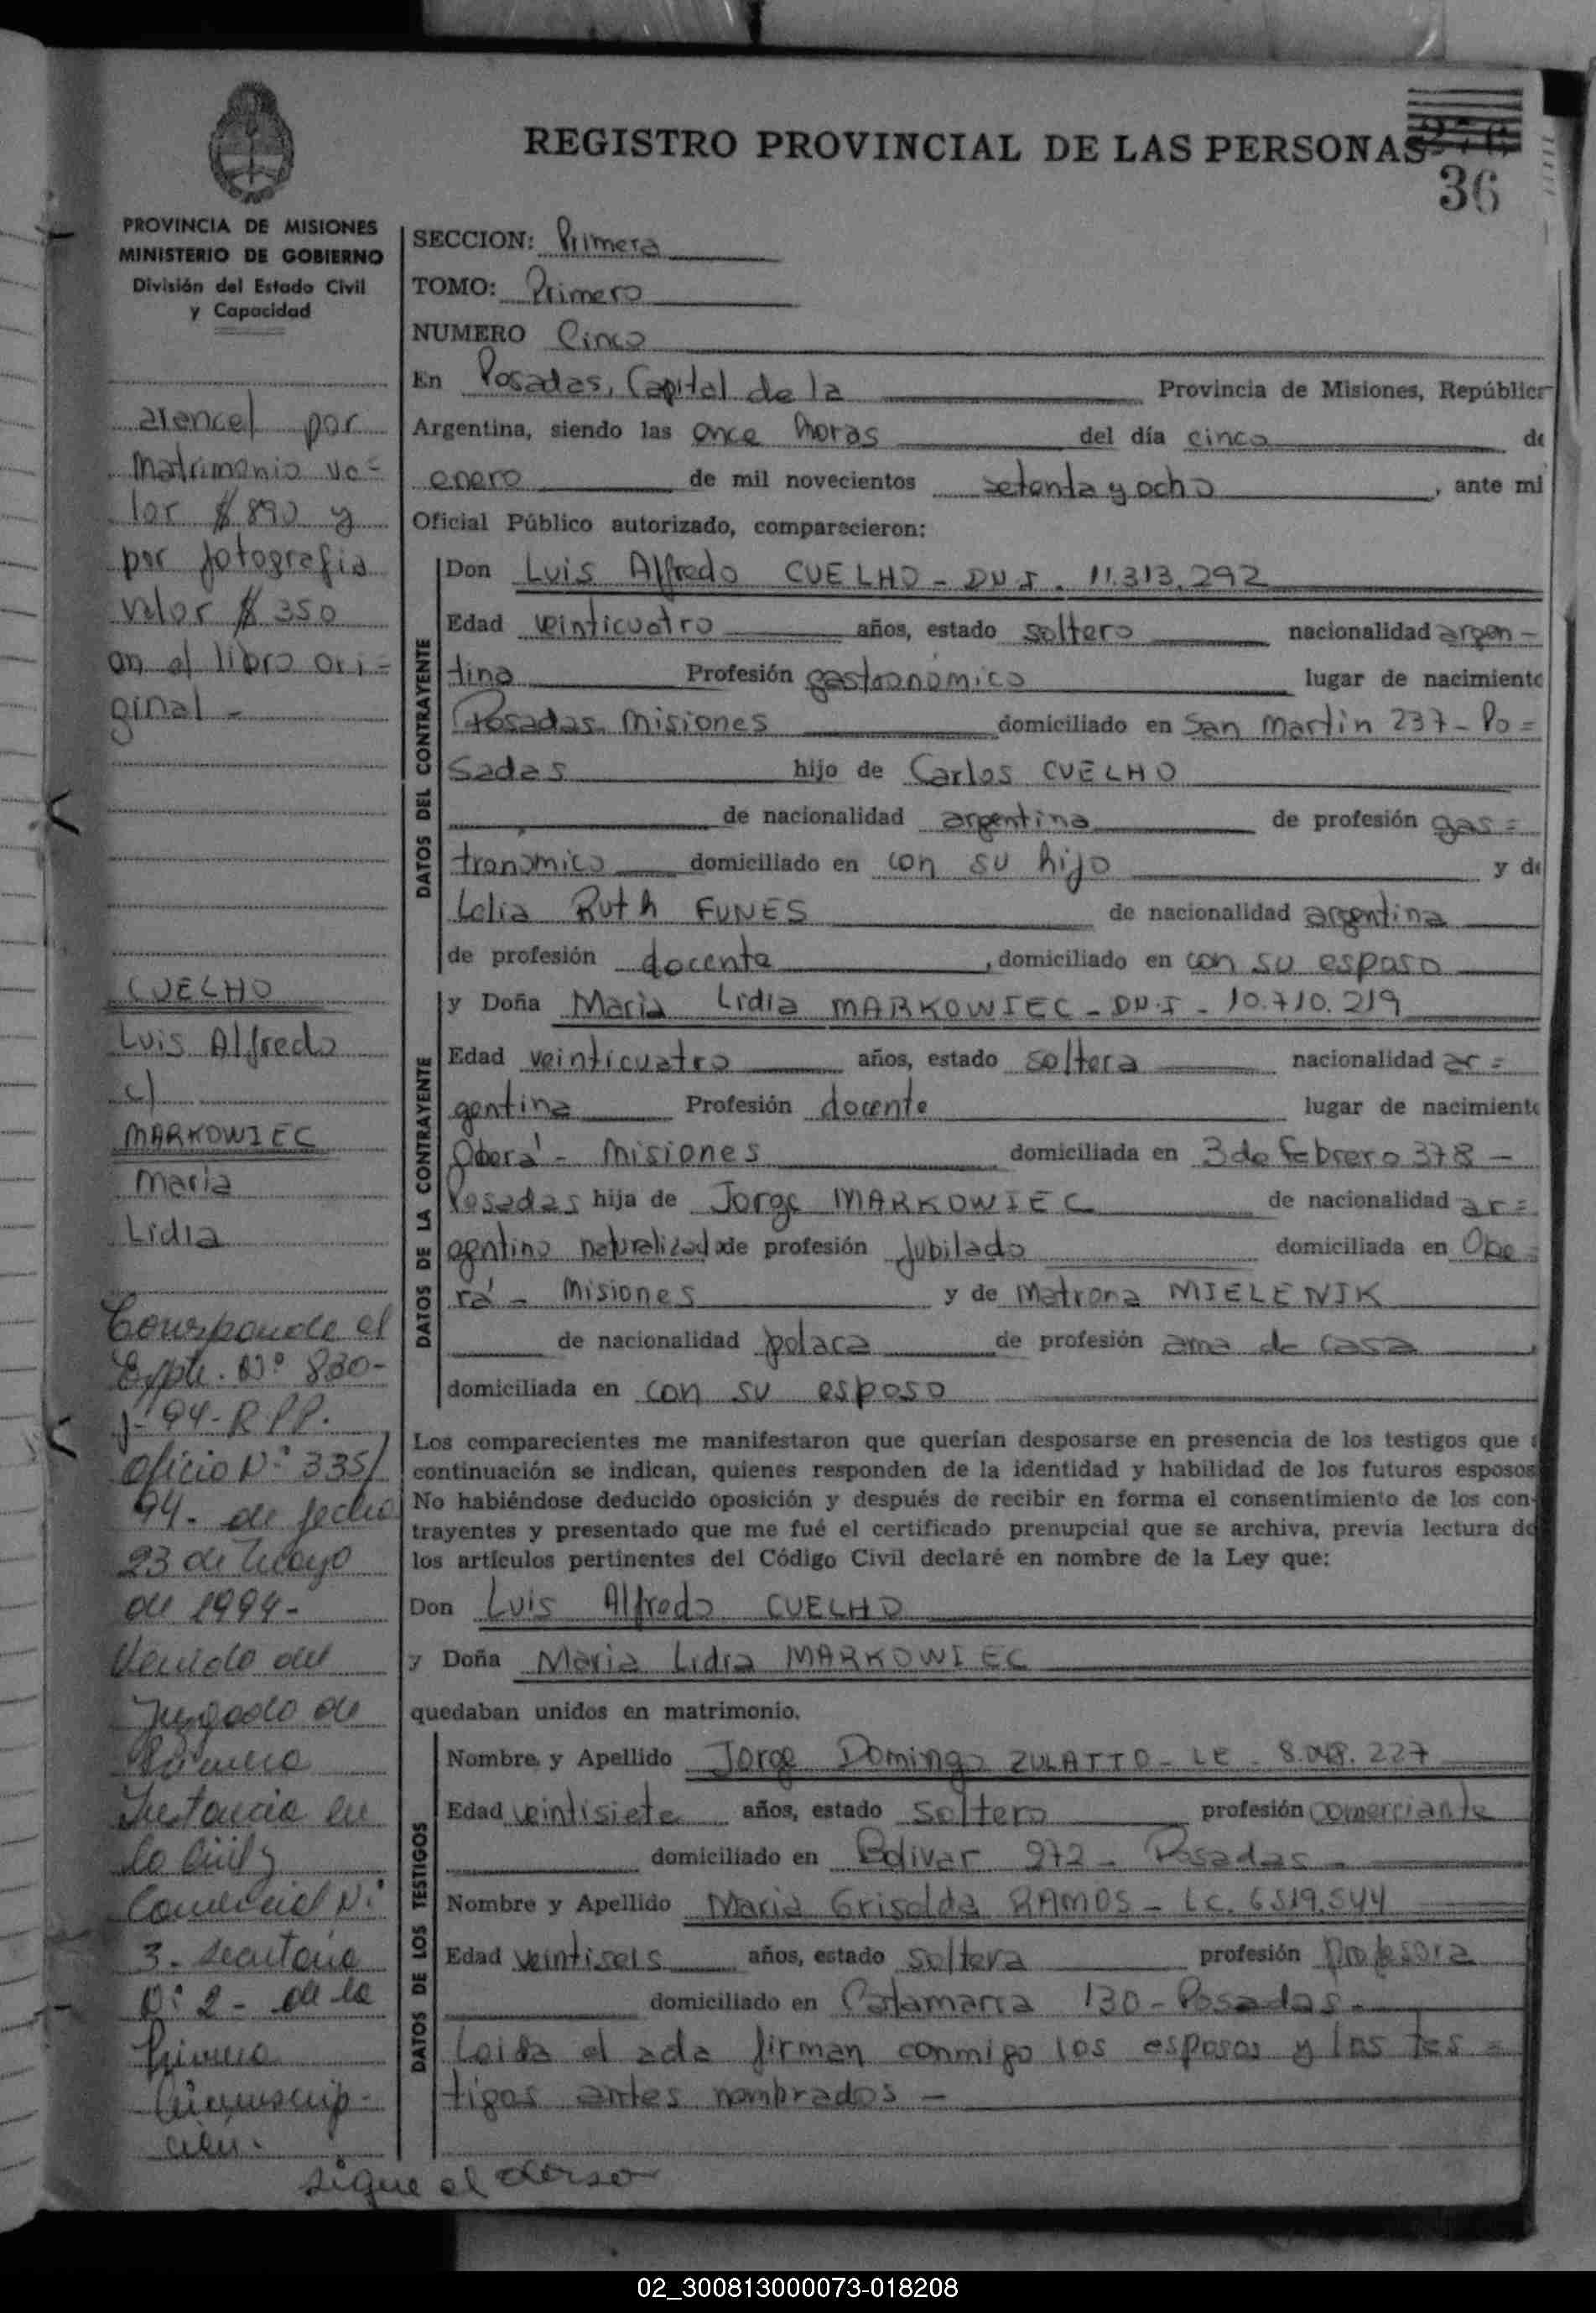 REGISTRO PROVINCIAL DE LAS PERSONAS
36
PROVINCIA DE MISIONES
MINISTERIO DE GOBIERNO
División del Estado Civil
y Capacidad
arancel por
Matrimonio va=
lor $ 890 y
por fotografia
valor $ 350
en el libro ori=
ginal -
CUELHO
Luis Alfredo
c/
MARKOWIEC
Maria
Lidia
Corresponde al
Expte. Nº 830-
J-94-R P P.
Oficio Nº 335/
94. de fecha
23 de Mayo
de 1994-
Venido del
Juzgado de
Primera
Instancia en
lo Civil y
Comercial Nº
3. Secretaria
Nº 2 - de la
Primera
Circunscrip-
ción.
Sigue al dorso
SECCION: Primera
TOMO: Primero
NUMERO Cinco
En Posadas, Capital de la Provincia de Misiones, República
Argentina, siendo las once horas del día cinco de
enero de mil novecientos setenta y ocho, ante mi
Oficial Público autorizado, comparecieron:
DATOS DEL CONTRAYENTE
Don Luis Alfredo CUELHO - DN I. 11.313.292
Edad veinticuatro años, estado soltero nacionalidad argen-
tina Profesión gastronómico lugar de nacimiento
Posadas Misiones domiciliado en San Martin 237 - Po=
sadas hijo de Carlos CUELHO
de nacionalidad argentina de profesión gas=
tronomico domiciliado en con su hijo y de
Lelia Ruth FUNES de nacionalidad argentina
de profesión docente, domiciliado en con su esposo
DATOS DE LA CONTRAYENTE
y Doña Maria Lidia MARKOWIEC - DN.I - 10.710.219
Edad veinticuatro años, estado soltera nacionalidad ar=
gentina Profesión docente lugar de nacimiento
Oberá - Misiones domiciliada en 3 de Febrero 378 -
Posadas hija de Jorge MARKOWIEC de nacionalidad ar=
gentino naturalizado de profesión Jubilado domiciliada en Obe=
rá - Misiones y de Matrona MIELENIK
de nacionalidad polaca de profesión ama de casa
domiciliada en con su esposo
Los comparecientes me manifestaron que querían desposarse en presencia de los testigos que a
continuación se indican, quienes responden de la identidad y habilidad de los futuros esposos
No habiéndose deducido oposición y después de recibir en forma el consentimiento de los con-
trayentes y presentado que me fué el certificado prenupcial que se archiva, previa lectura de
los artículos pertinentes del Código Civil declaré en nombre de la Ley que:
Don Luis Alfredo CUELHO
y Doña Maria Lidia MARKOWIEC
quedaban unidos en matrimonio.
DATOS DE LOS TESTIGOS
Nombre y Apellido Jorge Domingo ZULATTO - LE - 8.048.227
Edad veintisiete años, estado soltero profesión comerciante
domiciliado en Bolivar 272 - Posadas -
Nombre y Apellido Maria Griselda RAMOS - LC. 6519.544
Edad veintiseis años, estado soltera profesión profesora
domiciliado en Catamarca 130 - Posadas -
Leida el acta firman conmigo los esposos y los tes=
tigos antes nombrados -
02_300813000073-018208